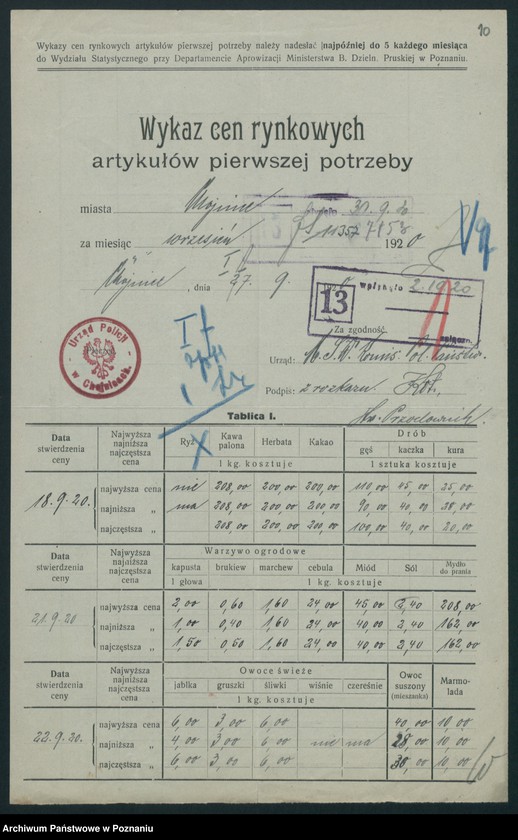 10
Wykazy cen rynkowych artykułów pierwszej potrzeby należy nadesłać najpóźniej do 5 każdego miesiąca
do Wydziału Statystycznego przy Departamencie Aprowizacji Ministerstwa B. Dzieln. Pruskiej w Poznaniu.
Wykaz cen rynkowych
artykułów pierwszej potrzeby
miasta Chojnice
za miesiąc wrzesień 1920
Chojnice, dnia 27. 9.
13 Wpłynęło 2.10.20
Za zgodność
Urząd Policji w Chojnicach
Urząd:
Podpis: z rozkazu Kot.
Przodownik.
Tablica I.
Data stwierdzenia ceny Najwyższa najniższa najczęstsza cena Ryż Kawa palona Herbata Kakao Drób
gęś kaczka kura
1 kg. kosztuje 1 sztuka kosztuje
18.9.20. najwyższa cena nie 208,00 200,00 200,00 110,00 45,00 25,00
najniższa „ ma 208,00 200,00 200,00 90,00 40,00
najczęstsza „ 208,00 200,00 200,00 100,00 40,00 20,00
Data stwierdzenia ceny Najwyższa najniższa najczęstsza cena Warzywo ogrodowe Miód Sól Mydło do prania
kapusta brukiew marchew cebula
1 głowa 1 kg. kosztuje
21.9.20 najwyższa cena 2,00 0,60 1,60 24,00 45,00 2,40 208,00
najniższa „ 1,00 0,40 1,60 24,00 40,00 2,40 162,00
najczęstsza „ 1,50 0,50 1,60 24,00 40,00 2,40 162,00
Data stwierdzenia ceny Najwyższa najniższa najczęstsza cena Owoce świeże Owoc suszony (mieszanka) Marmolada
jabłka gruszki śliwki wiśnie czereśnie
1 kg. kosztuje
22.9.20. najwyższa cena 6,00 3,00 6,00 40,00 10,00
najniższa „ 4,00 3,00 6,00 nie ma 28,00 10,00
najczęstsza „ 6,00 3,00 6,00 30,00 10,00
Archiwum Państwowe w Poznaniu